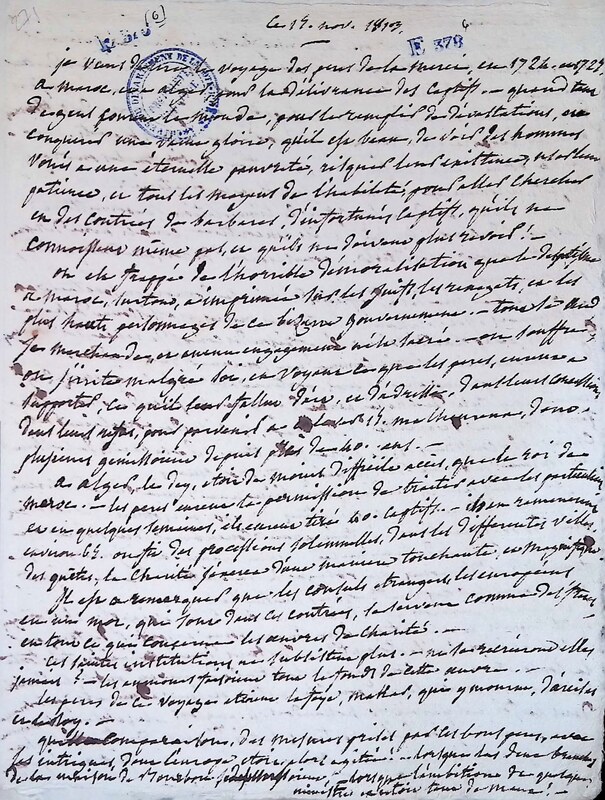 (6)
ce 19. nov. 1813. 6
E 378 E 378
je viens de voyage des peres de la merci, en 1724. et 1725
a maroc, et a alger, pour la délivrance des captifs. — quand tant
de gens le monde, pour le remplir de dévastations, en
conquerir une vaine gloire, qu'il est beau de voir des hommes
voués a une éternelle pauvreté, risquer leur existence, et leur
patience, et tous les moyens de l'habileté, pour aller chercher
en des contrées de barbares d'infortunés captifs, qu'ils ne
connoissent même pas, et qu'ils ne doivent plus revoir! —
on est frappé de l'horrible démoralisation que le despotisme
a maroc, surtout, a imprimée sur les juifs, les renegats, et les
plus hauts personnages de ce bizarre gouvernement. — tout se vend
se marchande, et aucun engagement n'est sacré. — on souffre,
on s'irrite malgré soi, en voyant ce que les peres, eurent a
supporter, ce qu'il leur fallut d'art, et d'adresse, dans leurs concessions
dans leurs refus, pour parvenir a malheureux, dont
plusieurs gemissoient depuis plus de 40. ans. —
a alger le dey, etoit de moins difficile accès, que le roi de
maroc. — les peres eurent la permission de traiter avec les particuliers
et en quelques semaines, ils eurent tiré 40 captifs. — ils en ramenerent
environ 65. on fit des processions solemnelles, dans les differentes villes
des quêtes, la charité s'exerça d'une maniere touchante, et magnifique
Il est a remarquer que les consuls etrangers, les européens
en un mot, que sont dans ces contrées, se servent comme des freres
en tout ce qui concerne les œuvres de charité. —
ces saintes institutions, ne subsistent plus. — ne se recréeront elles
jamais? — les aumones faisoient tout le fonds de cette œuvre. —
les peres de ce voyage etoient la faye, mathas, qui y mourut, d'arcisas
et le roy. —
quelle comparaison, des mesures prises par ces bons peres, avec
les intrigues, dont l'europe, etoit, alors agitée! — lorsque les deux branches
de la maison de Bourbon, — lorsque l'ambition de quelque
ministre